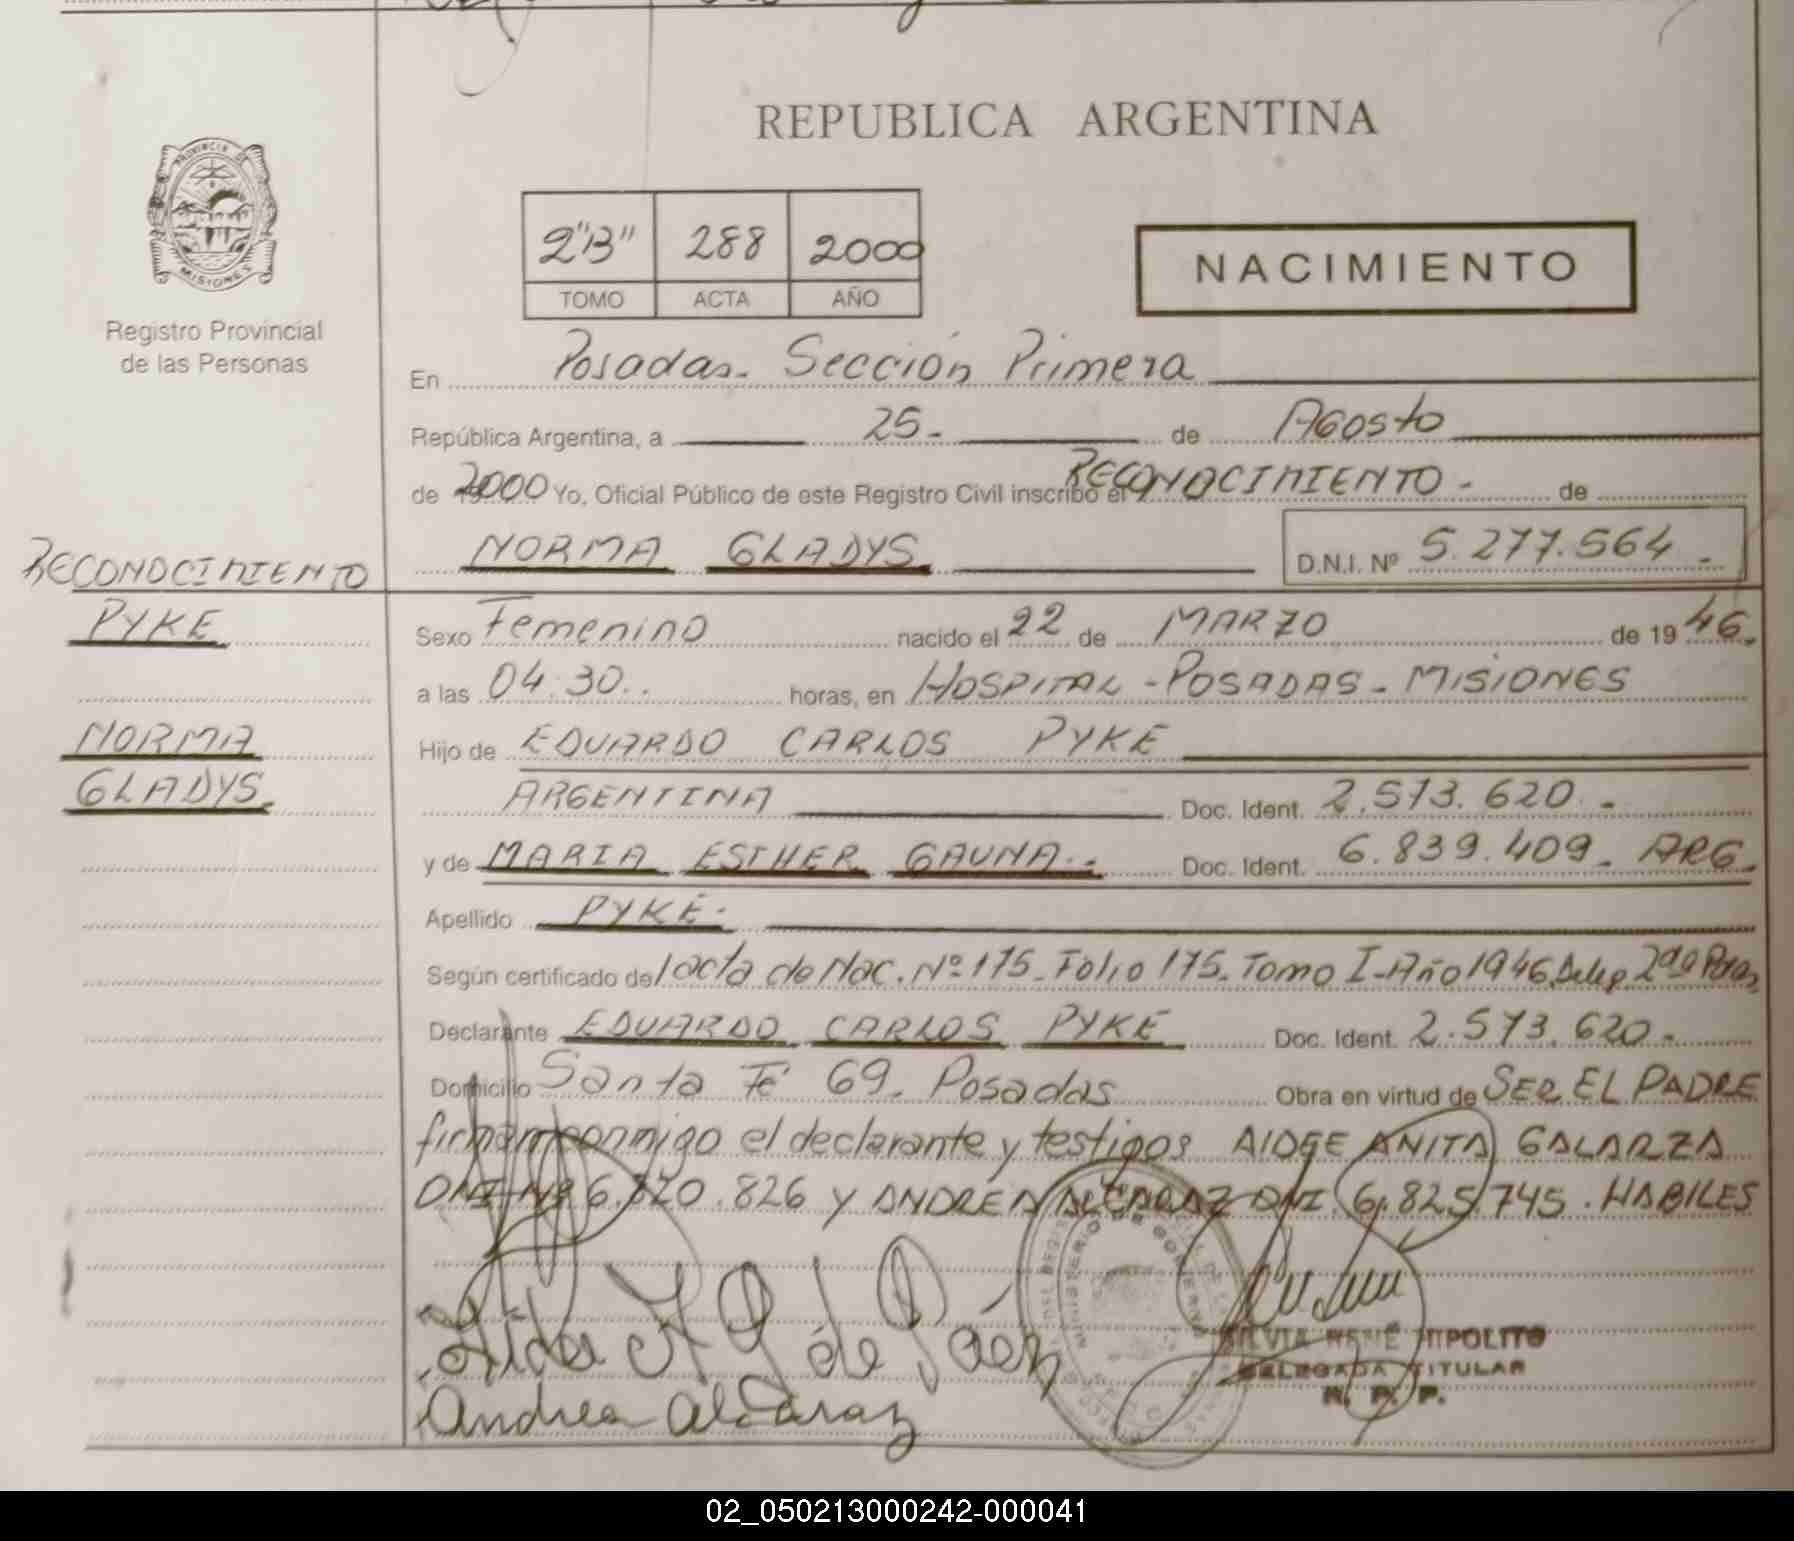 REPUBLICA ARGENTINA
PROVINCIA DE
MISIONES
Registro Provincial
de las Personas
2"B" 288 2000
TOMO ACTA AÑO
NACIMIENTO
En Posadas. Sección Primera
República Argentina, a 25. de Agosto
de 2000 Yo, Oficial Público de este Registro Civil inscribo el RECONOCIMIENTO - de
NORMA GLADYS. D.N.I. Nº 5.277.564.
RECONOCIMIENTO
PYKE
NORMA
GLADYS.
Sexo Femenino nacido el 22 de MARZO de 1946.
a las 04.30.. horas, en HOSPITAL - POSADAS - MISIONES
Hijo de EDUARDO CARLOS PYKE
ARGENTINA Doc. Ident. 2.573.620.-
y de MARIA ESTHER GAUNA.- Doc. Ident. 6.839.409. ARG.
Apellido PYKE.
Según certificado del acta de Nac. Nº 175. Folio 175. Tomo I-Año 1946.Deleg 2da Pdas,
Declarante EDUARDO CARLOS PYKE Doc. Ident. 2.573.620.-
Domicilio Santa Fé 69. Posadas Obra en virtud de SER EL PADRE
firman conmigo el declarante y testigos AIDEE ANITA GALARZA
DNI Nº 6.820.826 Y ANDREA ALCARAZ DNI 6.825.745. HABILES
de Páez
Andrea Alcaraz
MINISTERIO DE GOBIERNO
SILVIA RENÉ HIPOLITO
DELEGADA TITULAR
R. P. P.
02_050213000242-000041